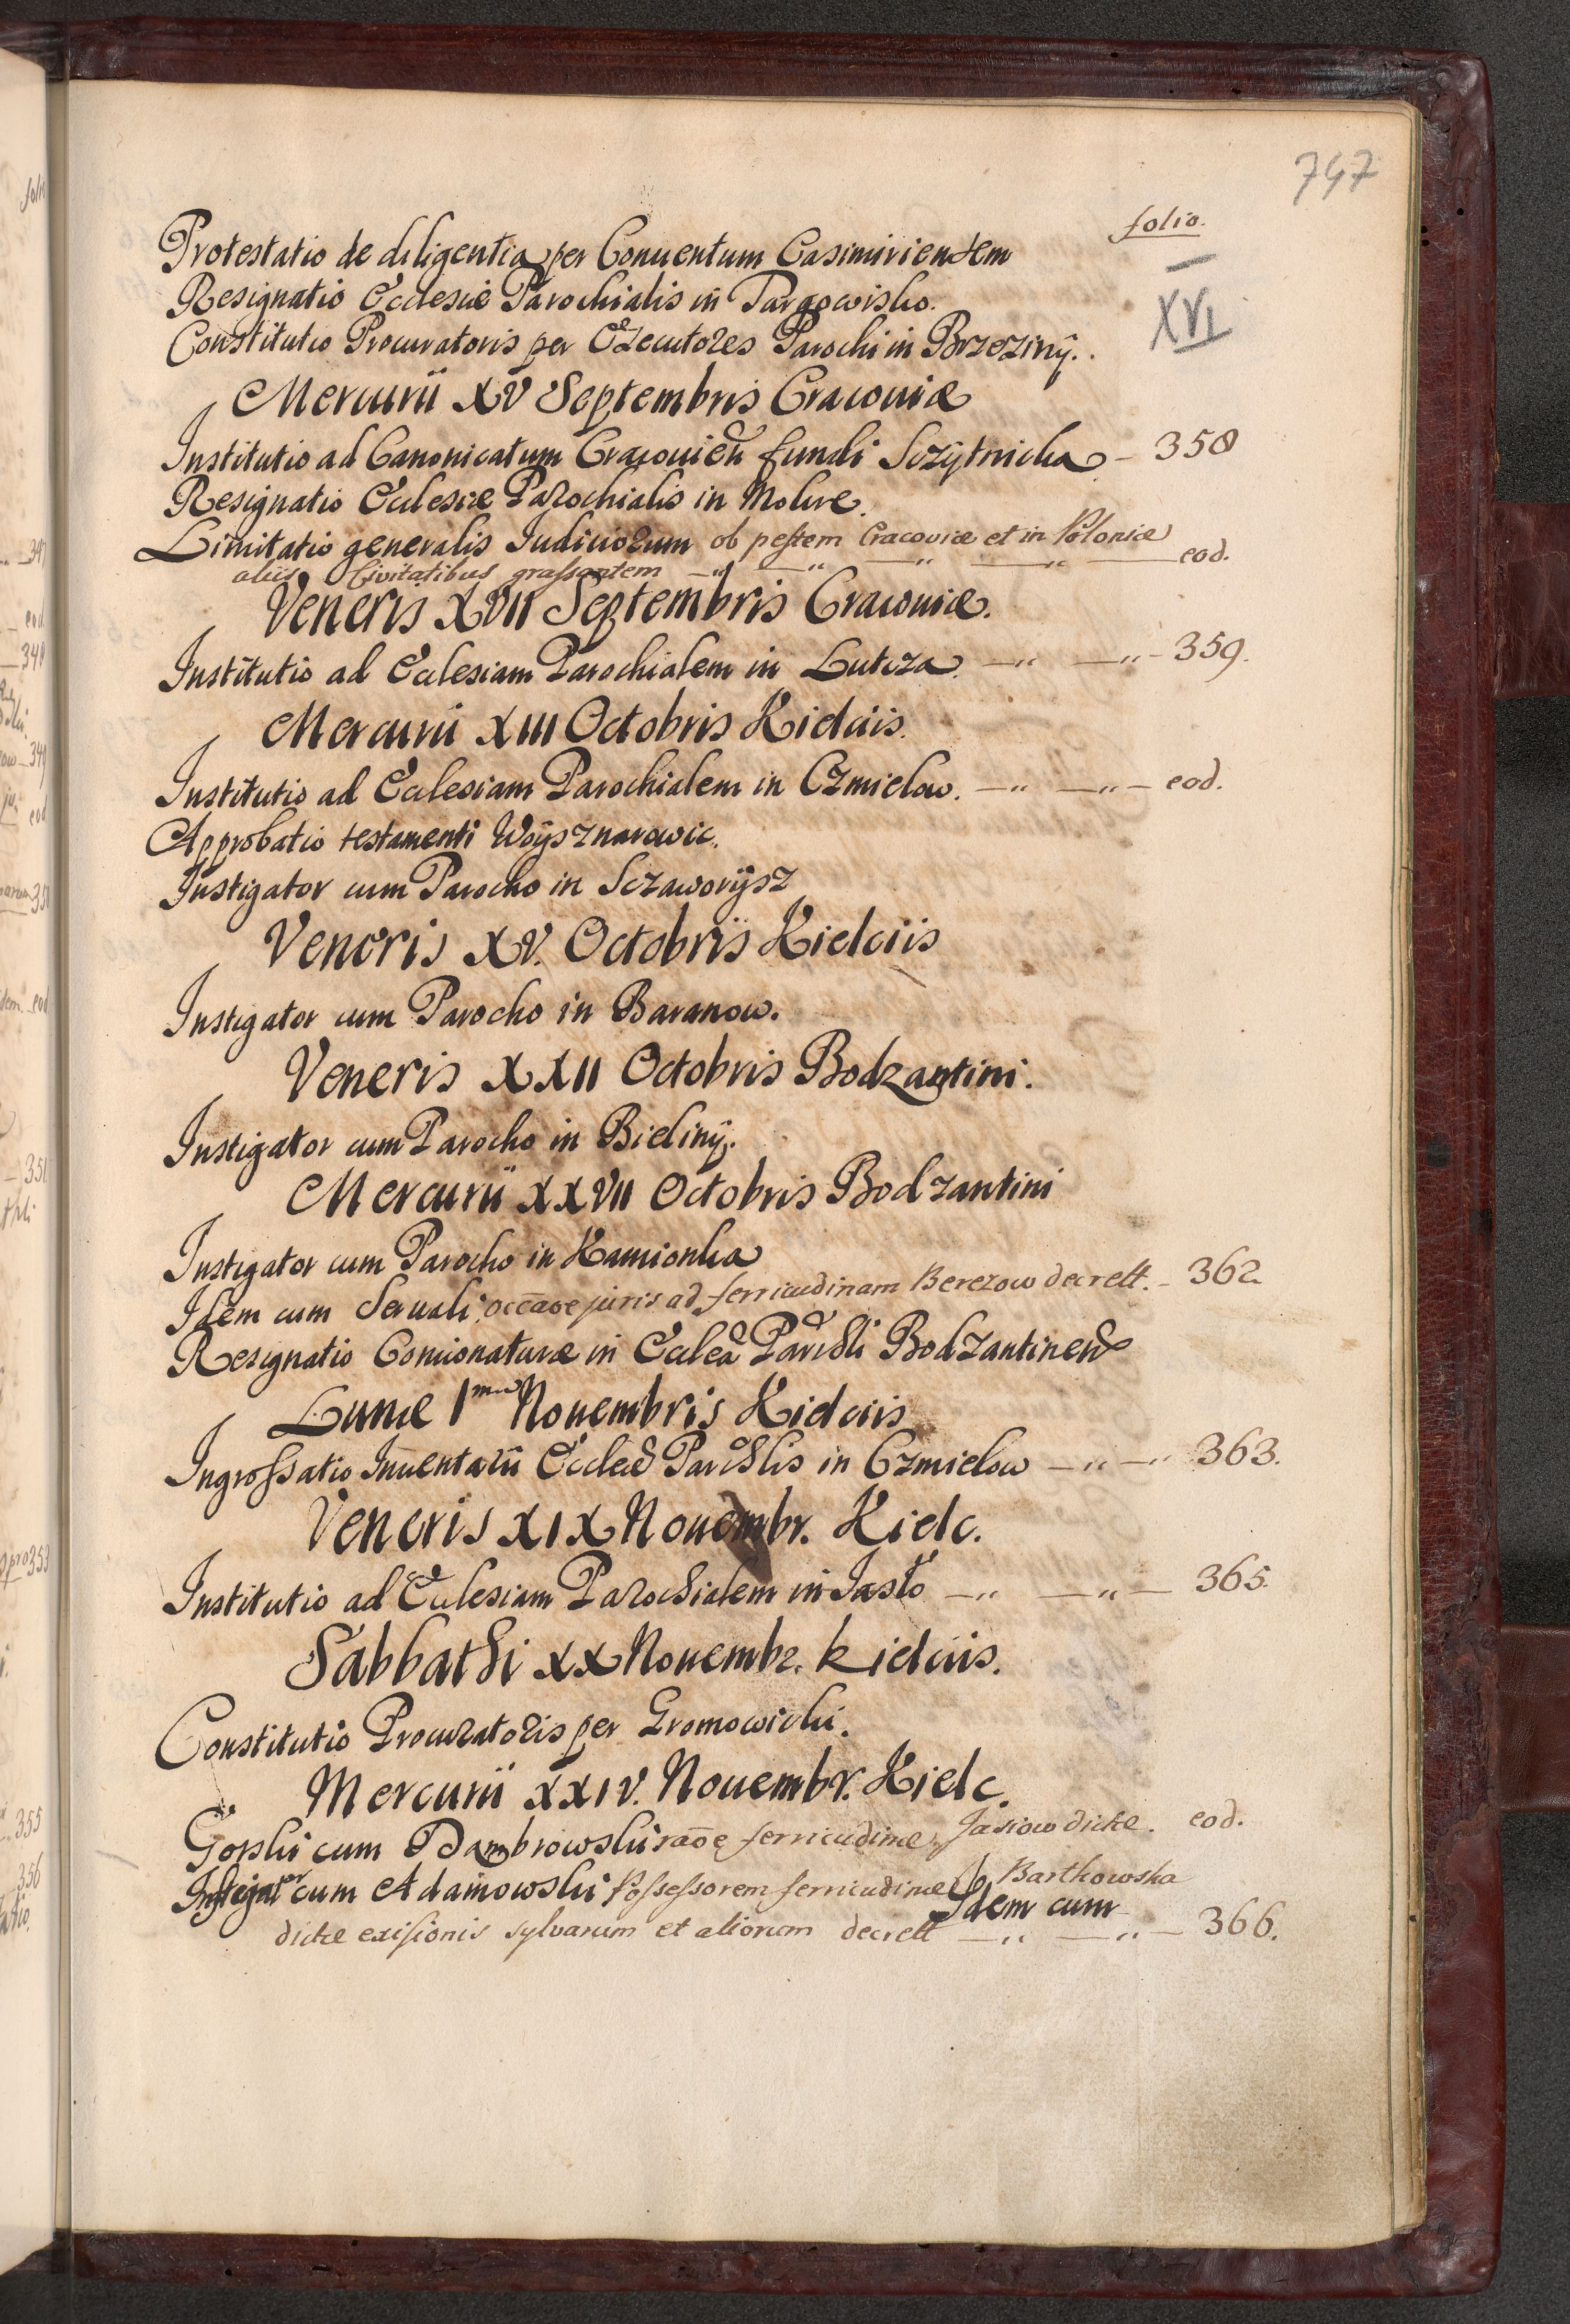 747
folio.
XVI
Protestatio de diligentia per Conuentum Casimiriensem
Resignatio Ecclesiæ Parochialis in Targowisko.
Constitutio Procuratoris per Executores Parochi in Brzeziny.
Mercurii XV Septembris Cracouiæ
Institutio ad Canonicatum Cracouien fundi Sczytnicka – 358
Resignatio Ecclesiæ Parochialis in Mokre.
Limitatio generalis Iudiciorum ob pestem Cracoviæ et in Poloniæ
aliis Civitatibus grassantem —„ —„ —„ —„ — eod.
Veneris XVII Septembris Cracouiæ.
Institutio ad Ecclesiam Parochialem in Lutcza. —„ —„– 359.
Mercurii XIII Octobris Kielciis.
Institutio ad Ecclesiam Parochialem in Czmielow. —„ —„— eod.
Approbatio testamenti Woysznarowic.
Instigator cum Parocho in Sczaworysz
Veneris XV. Octobris Kielciis
Instigator cum Parocho in Baranow.
Veneris XXII Octobris Bodzantini.
Instigator cum Parocho in Bieliny.
Mercurii XXVII Octobris Bodzantini
Instigator cum Parocho in Kamionka
Idem cum occaōe juris ad ferricudinam Berezow decrett. – 362
Resignatio Concionaturæ in Eccleā Parchli Bodzantinen
Lunæ 1ma Nouembris Kielciis
Ingrossatio Inuentarii Eccleæ Parchlis in Czmielow —„ —„ 363.
Veneris XIX Nouembr. Kielc.
Institutio ad Ecclesiam Parochialem in Jasło —„ —„— 365.
Sabbathi XX Nouembr. Kielciis.
Constitutio Procuratoris per Gromowicki.
Mercurii XXIV. Nouembr. Kielc.
Gorski cum Dambrowski raōe ferricudinæ Jasiow dictæ. eod.
Instigator cum Adamowski Possessorem ferricudinæ Bartkowska
Idem cum
dictæ excisionis sylvarum et aliorum decrett —„ —„— 366.